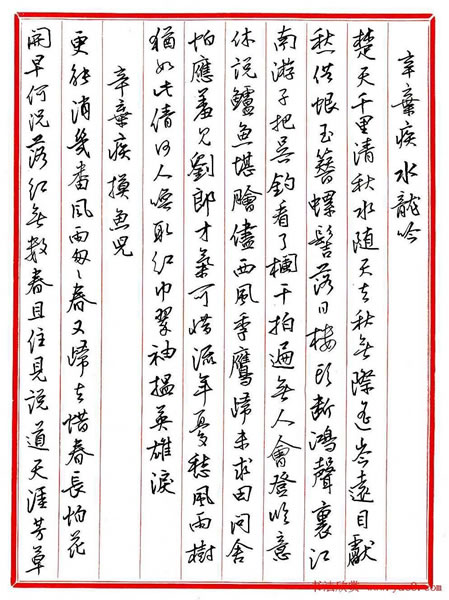 辛棄疾水龍吟
楚天千里清秋水随天去秋無際遥岑遠目獻
愁供恨玉簪螺髻落日樓頭斷鴻聲裏江
南游子把吴鈎看了欄干拍遍無人會登臨意
休説鱸魚堪膾儘西風季鷹歸未求田問舍
怕應羞見劉郎才氣可惜流年憂愁風雨樹
猶如此倩何人唤取紅巾翠袖揾英雄淚
辛棄疾摸魚兒
更能消幾番風雨匆匆春又歸去惜春長怕花
開早何況落紅無數春且住見説道天涯芳草
书法欣赏 www.yac8.com